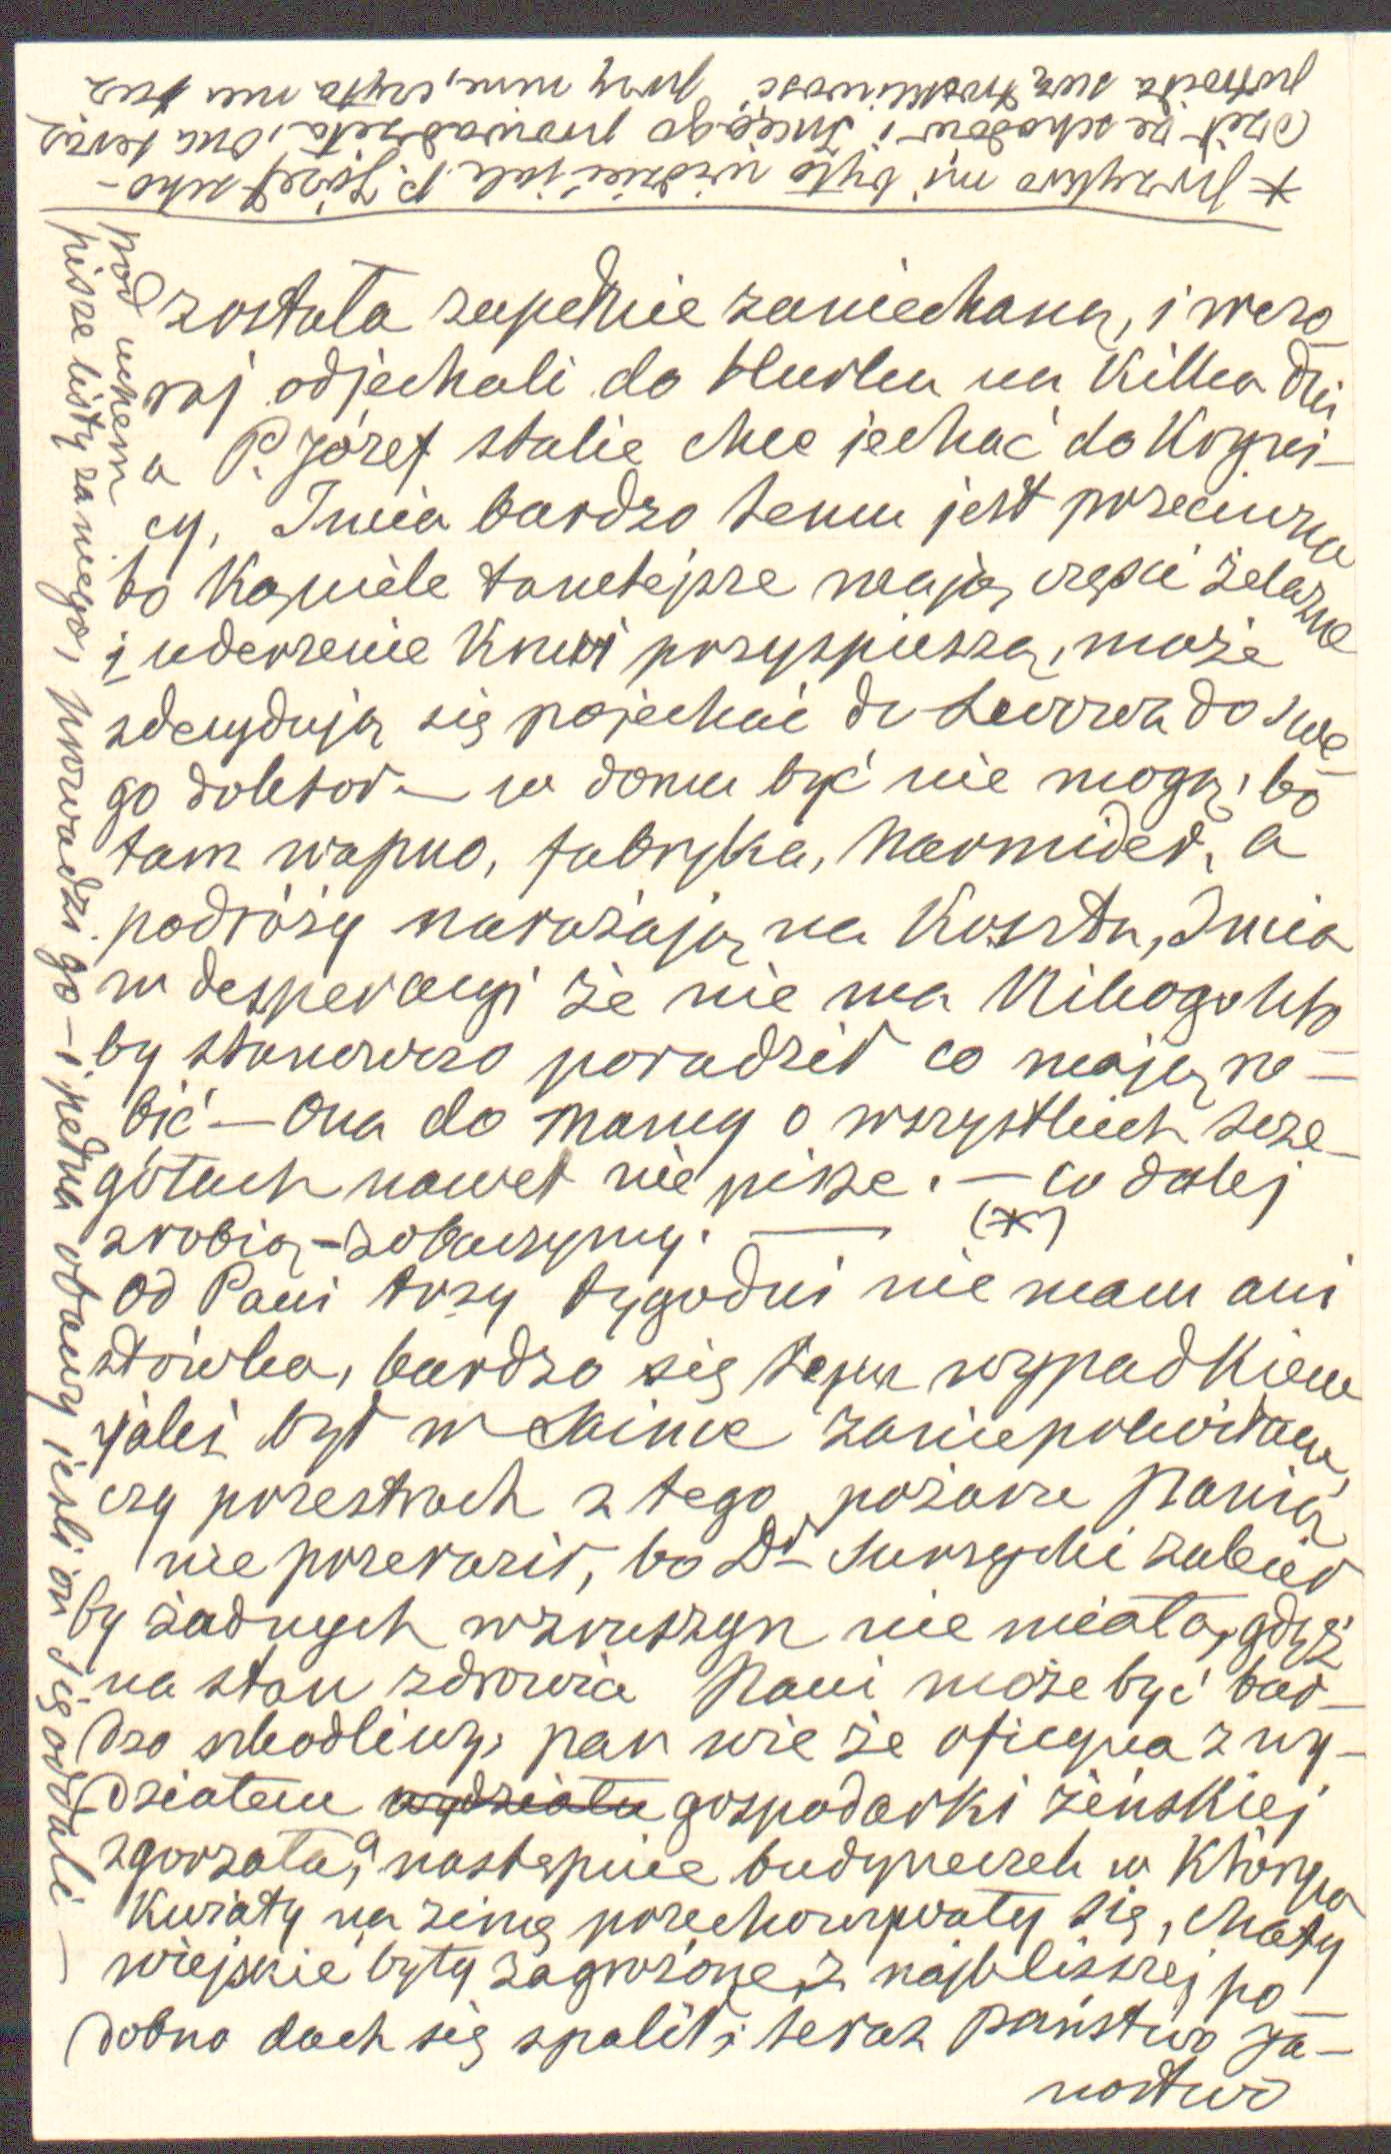 została zupełnie zaniechaną, i wczo
raj odjechali do Hurka na kilka dni
a P. Józef stale chce jechać do Kryni-
cy, Incia bardzo temu jest przeciwna
bo kąpiele tamtejsze mają części żelazne
i uderzenie krwi przyspieszą, może
zdecydują się pojechać do Lwowa do swe-
go doktor— w domu być nie mogą, bo
tam wapno, fabryka, harmider, a
podróży narażają na koszta, Incia
w desperacyi że nie ma nikogo kto
by stanowczo poradził co mają ro-
bić — Ona do Mamy o wszystkich szcze-
gółach nawet nie pisze. — co dalej
zrobią — zobaczymy. — (*)
Od Pani trzy tygodni nie mam ani
słówka, bardzo się tym wypadkiem
jaki był w zaniepokoiłam,
czy przestrach z tego pożaru Panią
nie przeraził, bo Dr Surzycki zalecił
by żadnych wzruszyn nie miała, gdyż
na stan zdrowia Pani może być bar-
dzo szkodliwy, pan wie że oficyna z wy-
działem wydziału gospodarki żeńskiej
zgorzała, a następnie budyneczek w którym
kwiaty na zimę przechowywały się, chaty
wiejskie były zagrożone, z najbliższej po-
dobno dach się spalił, teraz państwo Ja-
nostwo
* przykro mi było widzieć jak P. Józef scho-
dził ze schodów i Incia go prowadziła, ona teraz
potroiła swą troskliwość przy nim, czyta mu
pisze listy za niego, prowadzi go
pod uchem — i pełna obawy jeśli on się oddali —